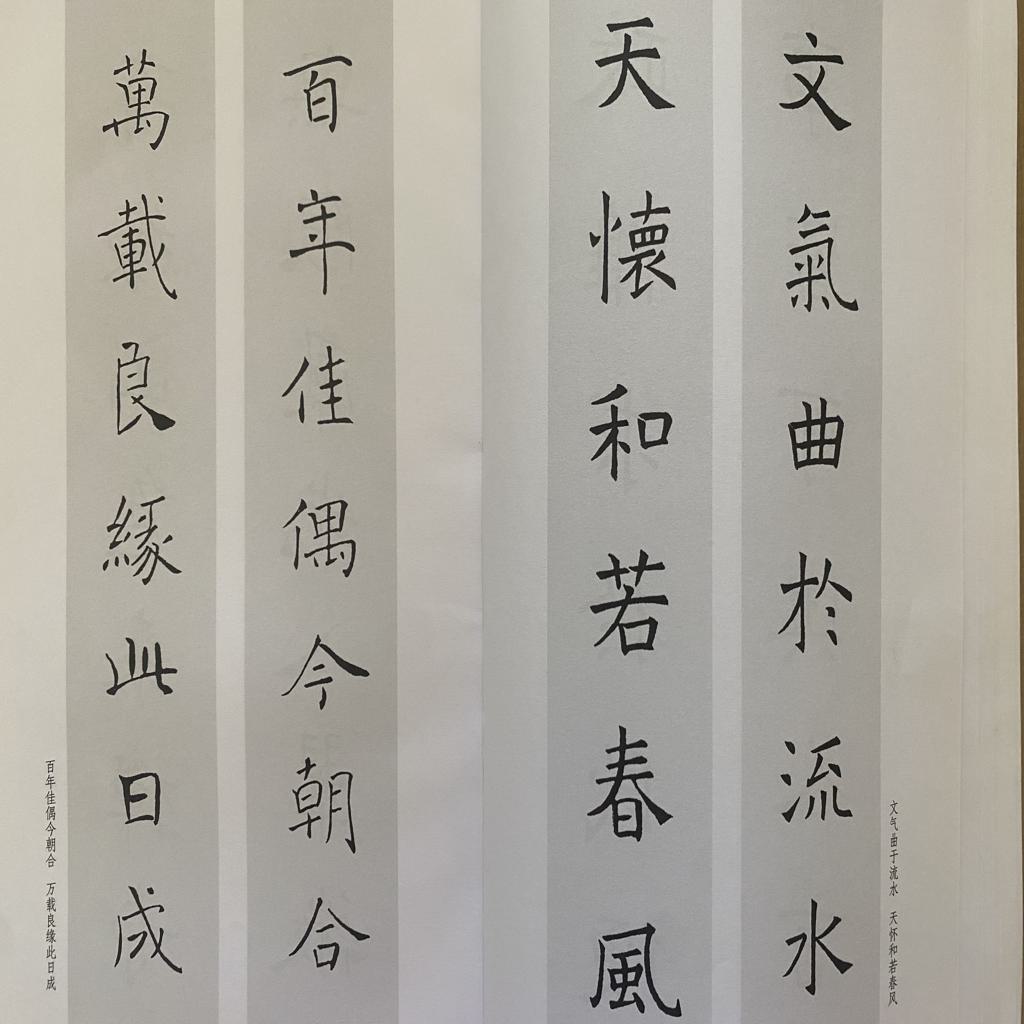 文氣曲於流水
天懷和若春風
文气曲于流水 天怀和若春风
百年佳偶今朝合
萬載良緣此日成
百年佳偶今朝合 万载良缘此日成